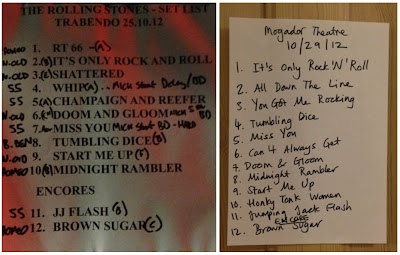 THE ROLLING STONES - SET LIST
TRABENDO 25.10.12
1. RT 66 -(A)
2.(B) IT'S ONLY ROCK AND ROLL
3.(E) SHATTERED
SS 4. WHIP(A)... MICK START Delay/BD
SS 5.(A) CHAMPAIGN AND REEFER
6. DOOM AND GLOOM MICK
SS 7. MISS YOU MICK START BD -
8. TUMBLING DICE(B)
9. START ME UP (F)
10.(B) MIDNIGHT RAMBLER
ENCORES
SS 11. JJ FLASH (B)
12. BROWN SUGAR(C)
Mogador Theatre
10/29/12
1. It's Only Rock 'N' Roll
2. All Down The Line
3. You Got Me Rocking
4. Tumbling Dice
5. Miss You
6. Can't Always Get
7. Doom & Gloom
8. Midnight Rambler
9. Start Me Up
10. Honky Tonk Women
11. Jumping Jack Flash
ENCORE
12. Brown Sugar